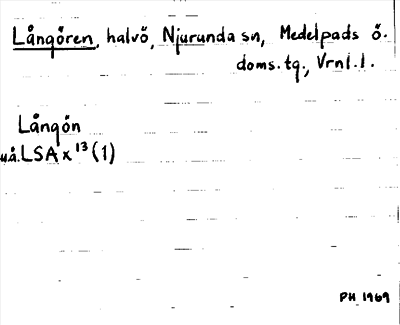 Långören, halvö, Njurunda sn, Medelpads ö.
doms.tg., Vrnl.l.
Långön
uå.LSA x¹³(1)
PH 1969